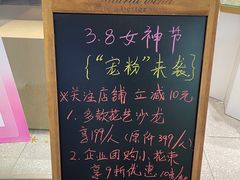 3.8女神节
{“宠粉”来袭}
※关注店铺 立减10元
1、多款花艺沙龙
享199/人（原价399/人）
2、企业团购小花束
享9折优惠